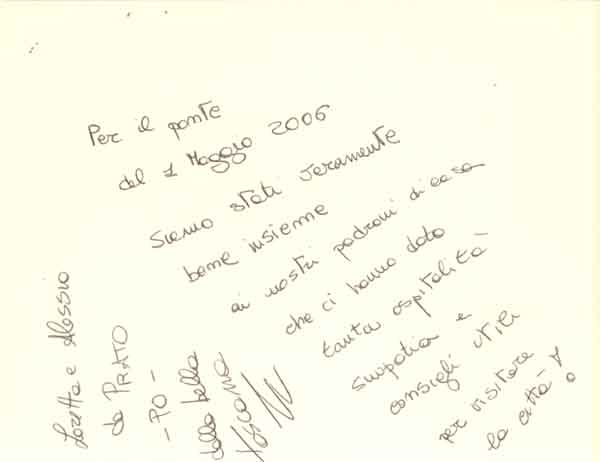 Per il ponte
del 1 Maggio 2006
Siamo stati veramente
bene insieme
ai nostri padroni di casa
che ci hanno dato
tanta ospitalità
simpatia e
consigli utili
per visitare
la città!
Loretta e Alessio
da PRATO
- PO -
dalla bella
toscana